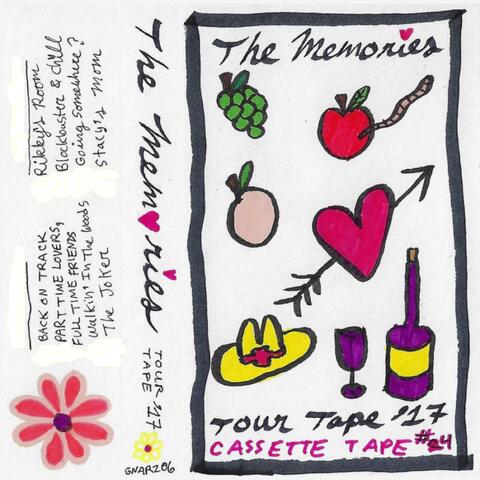 Rikky's Room
Blockbuster & chill
Going Somewhere?
Stacy's Mom
BACK ON TRACK
PART TIME LOVERS,
FULL TIME FRIENDS
Walkin' In The Woods
The Joker
The Memories
TOUR '17
TAPE
GNAR206
The Memories
TOUR TAPE '17
CASSETTE TAPE #24